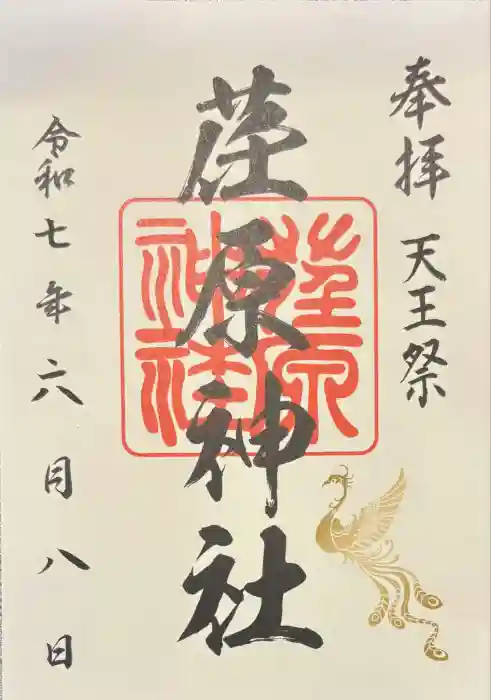 奉拝 天王祭
荏原神社
荏原神社
令和七年六月八日